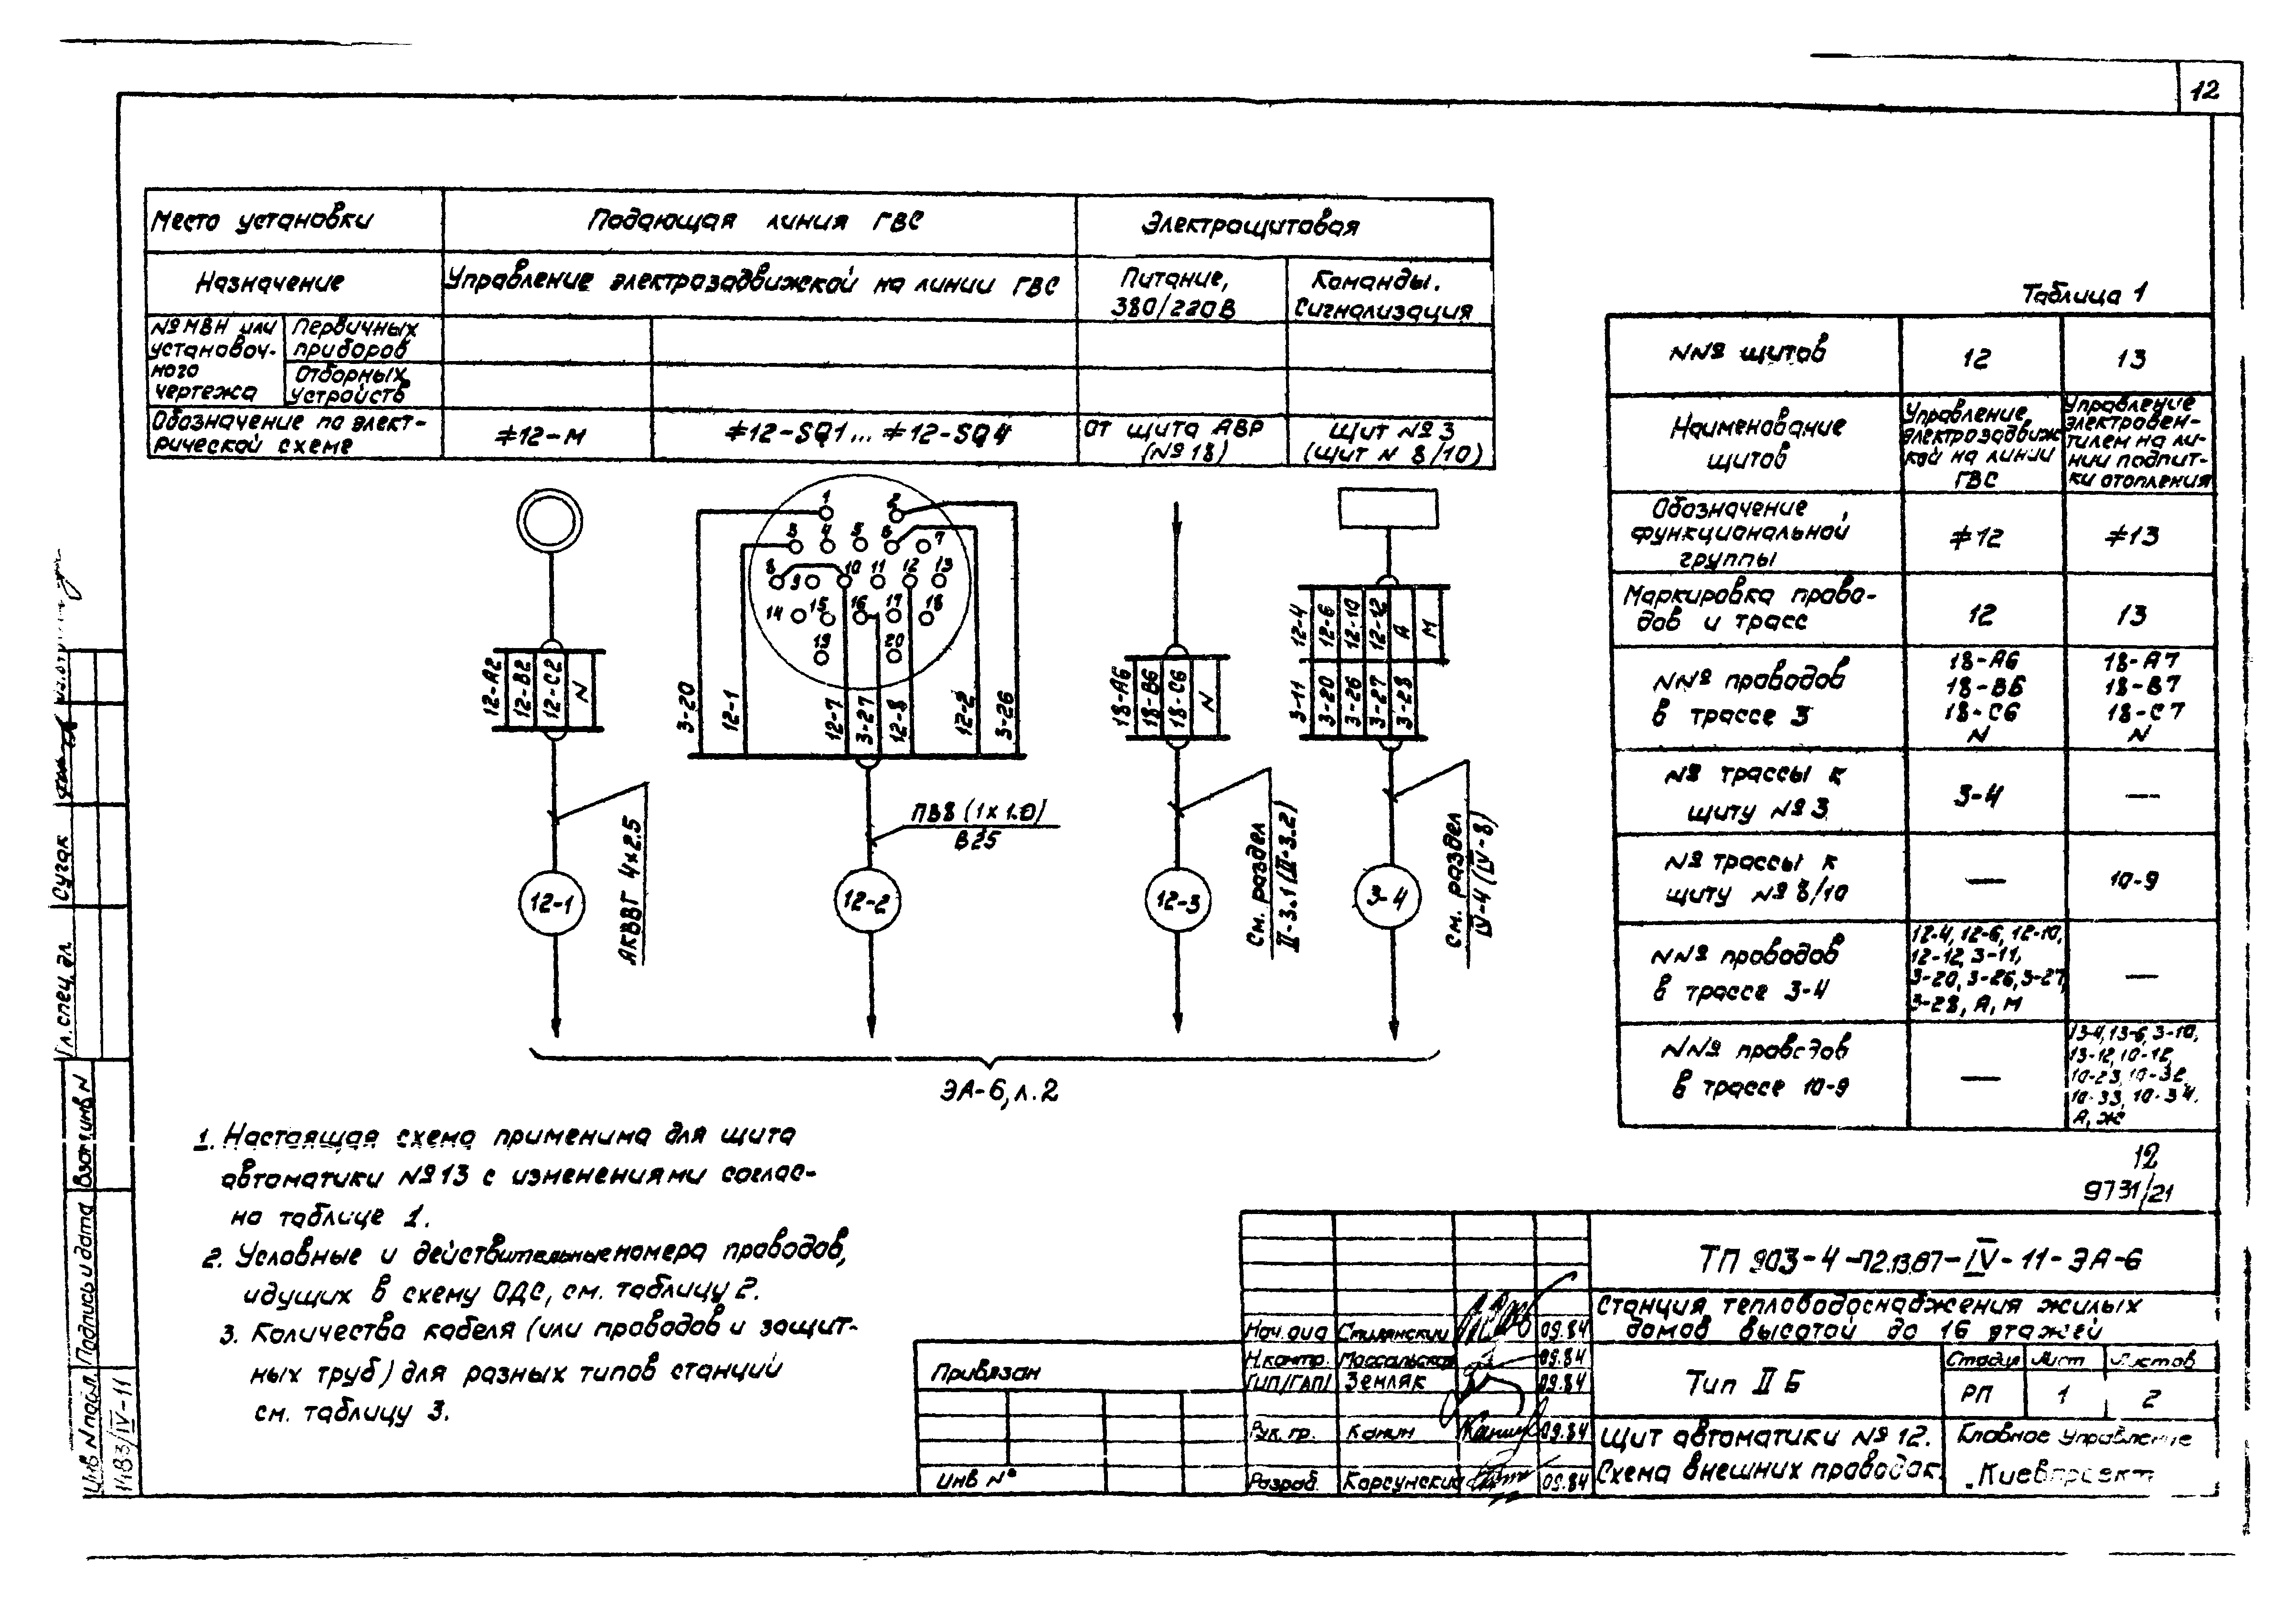 12
Место установки
Подающая линия ГВС
Электрощитовая
Назначение
Управление электрозадвижкой на линии ГВС
Питание,
380/220В
Команды.
Сигнализация
№ МВН или
установоч-
ного
чертежа
Первичных
приборов
Отборных
устройств
Обозначение по элект-
рической схеме
≠12-М
≠12-SQ1... ≠12-SQ4
От щита АВР
(№18)
Щит №3
(щит N 8/10)
1 2
3 4 5 6 7
8 9 10 11 12 13
14 15 16 17 18
19 20
12-А2
12-В2
12-С2
N
3-20
12-1
12-7
3-27
12-8
12-2
3-26
18-А6
18-В6
18-С6
N
12-4
12-6
12-10
12-12
А
М
3-11
3-20
3-26
3-27
3-28
АКВВГ 4х2.5
ПВ8 (1х1.0)
В25
См. раздел
II-3.1 (II-3.2)
См. раздел
IV-4 (IV-8)
12-1
12-2
12-3
3-4
ЭА-6, л.2
Таблица 1
NN° щитов
12
13
Наименование
щитов
Управление
электрозадвиж
кой на линии
ГВС
Управление
электровен-
тилем на ли-
нии подпит-
ки отопления
Обозначение
функциональной
группы
≠12
≠13
Маркировка прово-
дов и трасс
12
13
NN° проводов
в трассе 3
18-А6
18-В6
18-С6
N
18-А7
18-В7
18-С7
N
№ трассы к
щиту №3
3-4
—
№ трассы к
щиту №8/10
—
10-9
NN° проводов
в трассе 3-4
12-4, 12-6, 12-10,
12-12, 3-11,
3-20, 3-26, 3-27,
3-28, А, М
—
NN° проводов
в трассе 10-9
—
13-4, 13-6, 3-10,
13-12, 10-12,
10-23, 10-32,
10-33, 10-34,
А, Ж
12
9731/21
1. Настоящая схема применима для щита
автоматики №13 с изменениями соглас-
но таблице 1.
2. Условные и действительные номера проводов,
идущих в схему ОДС, см. таблицу 2.
3. Количества кабеля (или проводов и защит-
ных труб) для разных типов станций
см. таблицу 3.
Гл. спец. эл.
Сугак
Взам.инв N
Подпись и дата
Инв N подл.
1483/IV-11
Привязан
Инв №
Нач. отд
09.84
Н.контр.
09.84
ГИП/ГАП/ Земляк
09.84
Рук. гр. Канин
09.84
Разраб. Корсунский
09.84
ТП 903-4-72.13.87-IV-11-ЭА-6
Станция тепловодоснабжения жилых
домов высотой до 16 этажей
Тип II Б
Стадия Лист Листов
РП 1 2
Щит автоматики №12.
Схема внешних проводок.
Главное Управление
"Киевпроект